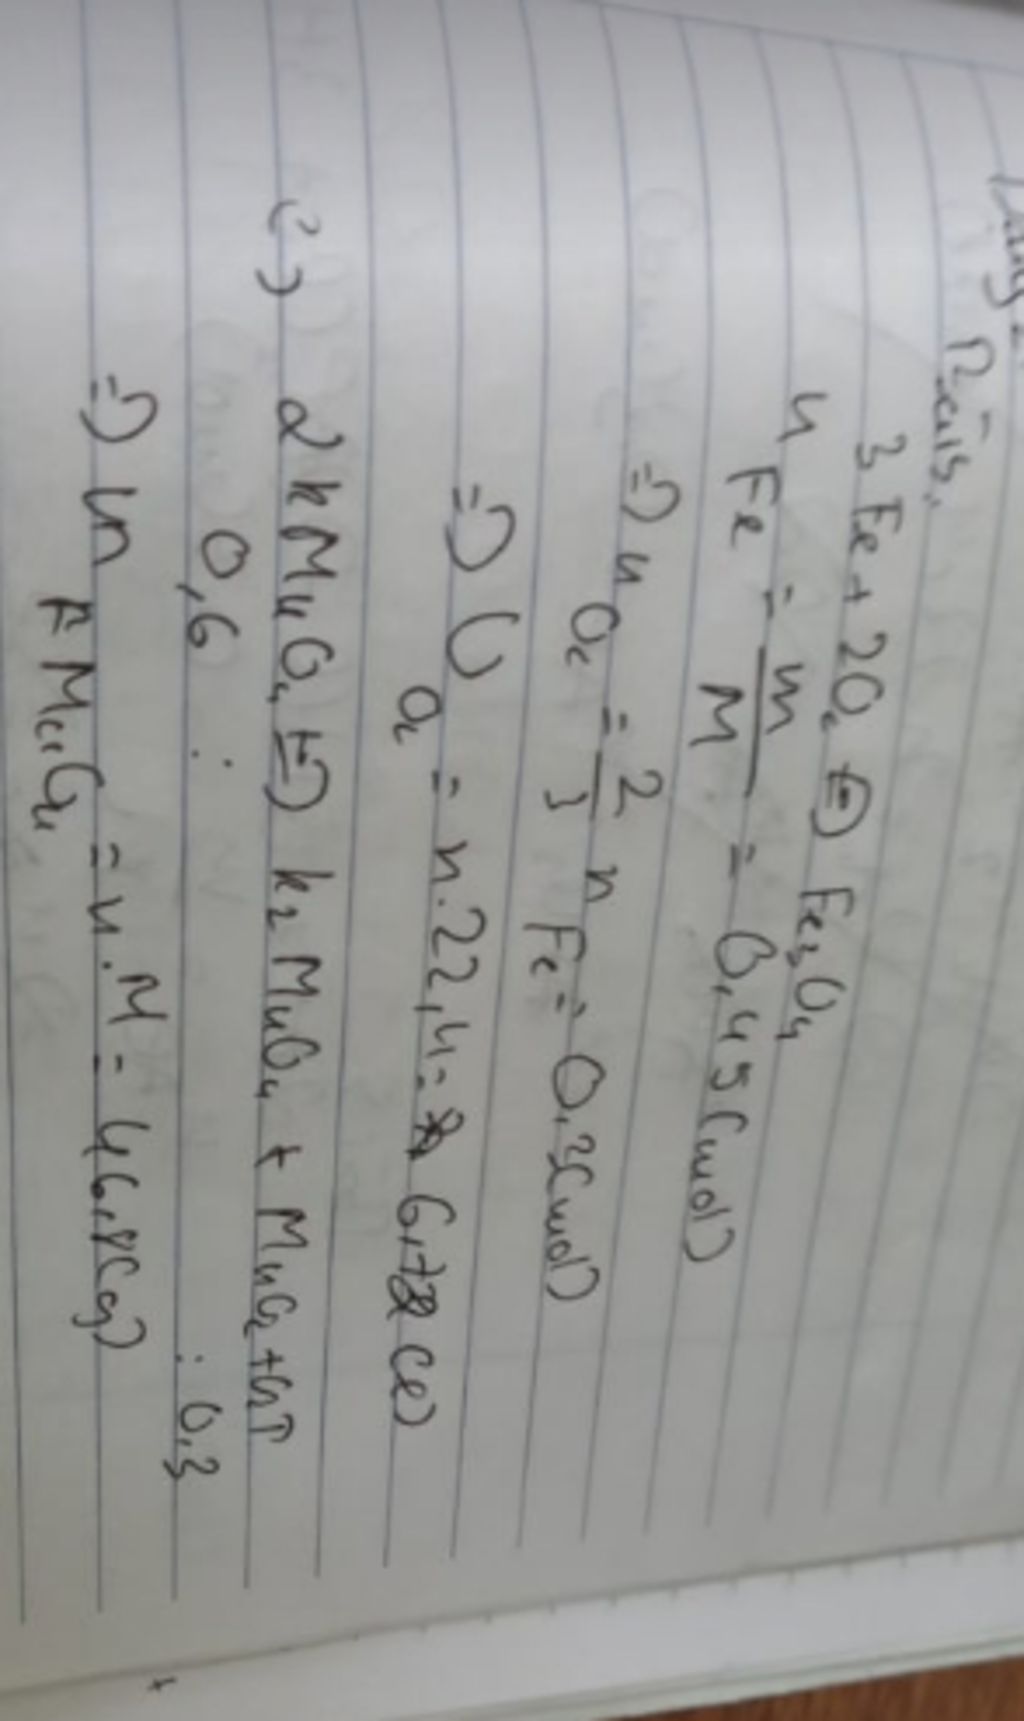 3Fe + 2O₂ → Fe₃O₄
n Fe = m/M = 0,45 (mol)
=> n O₂ = 2/3 n Fe = 0,3 (mol)
=> V O₂ = n.22,4 = 6,72 (l)
c) 2KMnO₄ → K₂MnO₄ + MnO₂ + O₂↑
0,6 : : 0,3
=> m = n.M = (g)